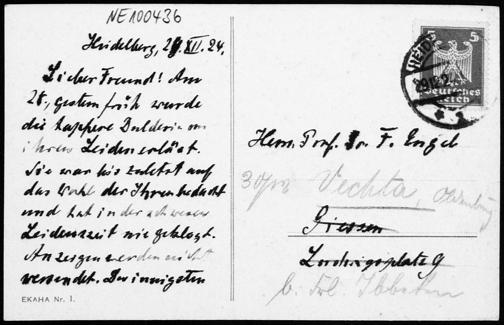 NE100436
Heidelberg, 29. XII. 24.
Lieber Freund! Am
28., gestern früh wurde
die tapfere Dulderin von
ihrem Leiden erlöst.
Sie war bis zuletzt auf
das Wohl der Ihren bedacht
und hat in der schweren
Leidenszeit nie geklagt.
Anzeigen werden nicht
versendet. Der innigsten
EKAHA Nr. 1.
5 5
Deutsches
Reich
Herrn Prof. Dr. F. Engel
Vechta, Oldenburg
Giessen
Ludwigsplatz 9
b. Frl.